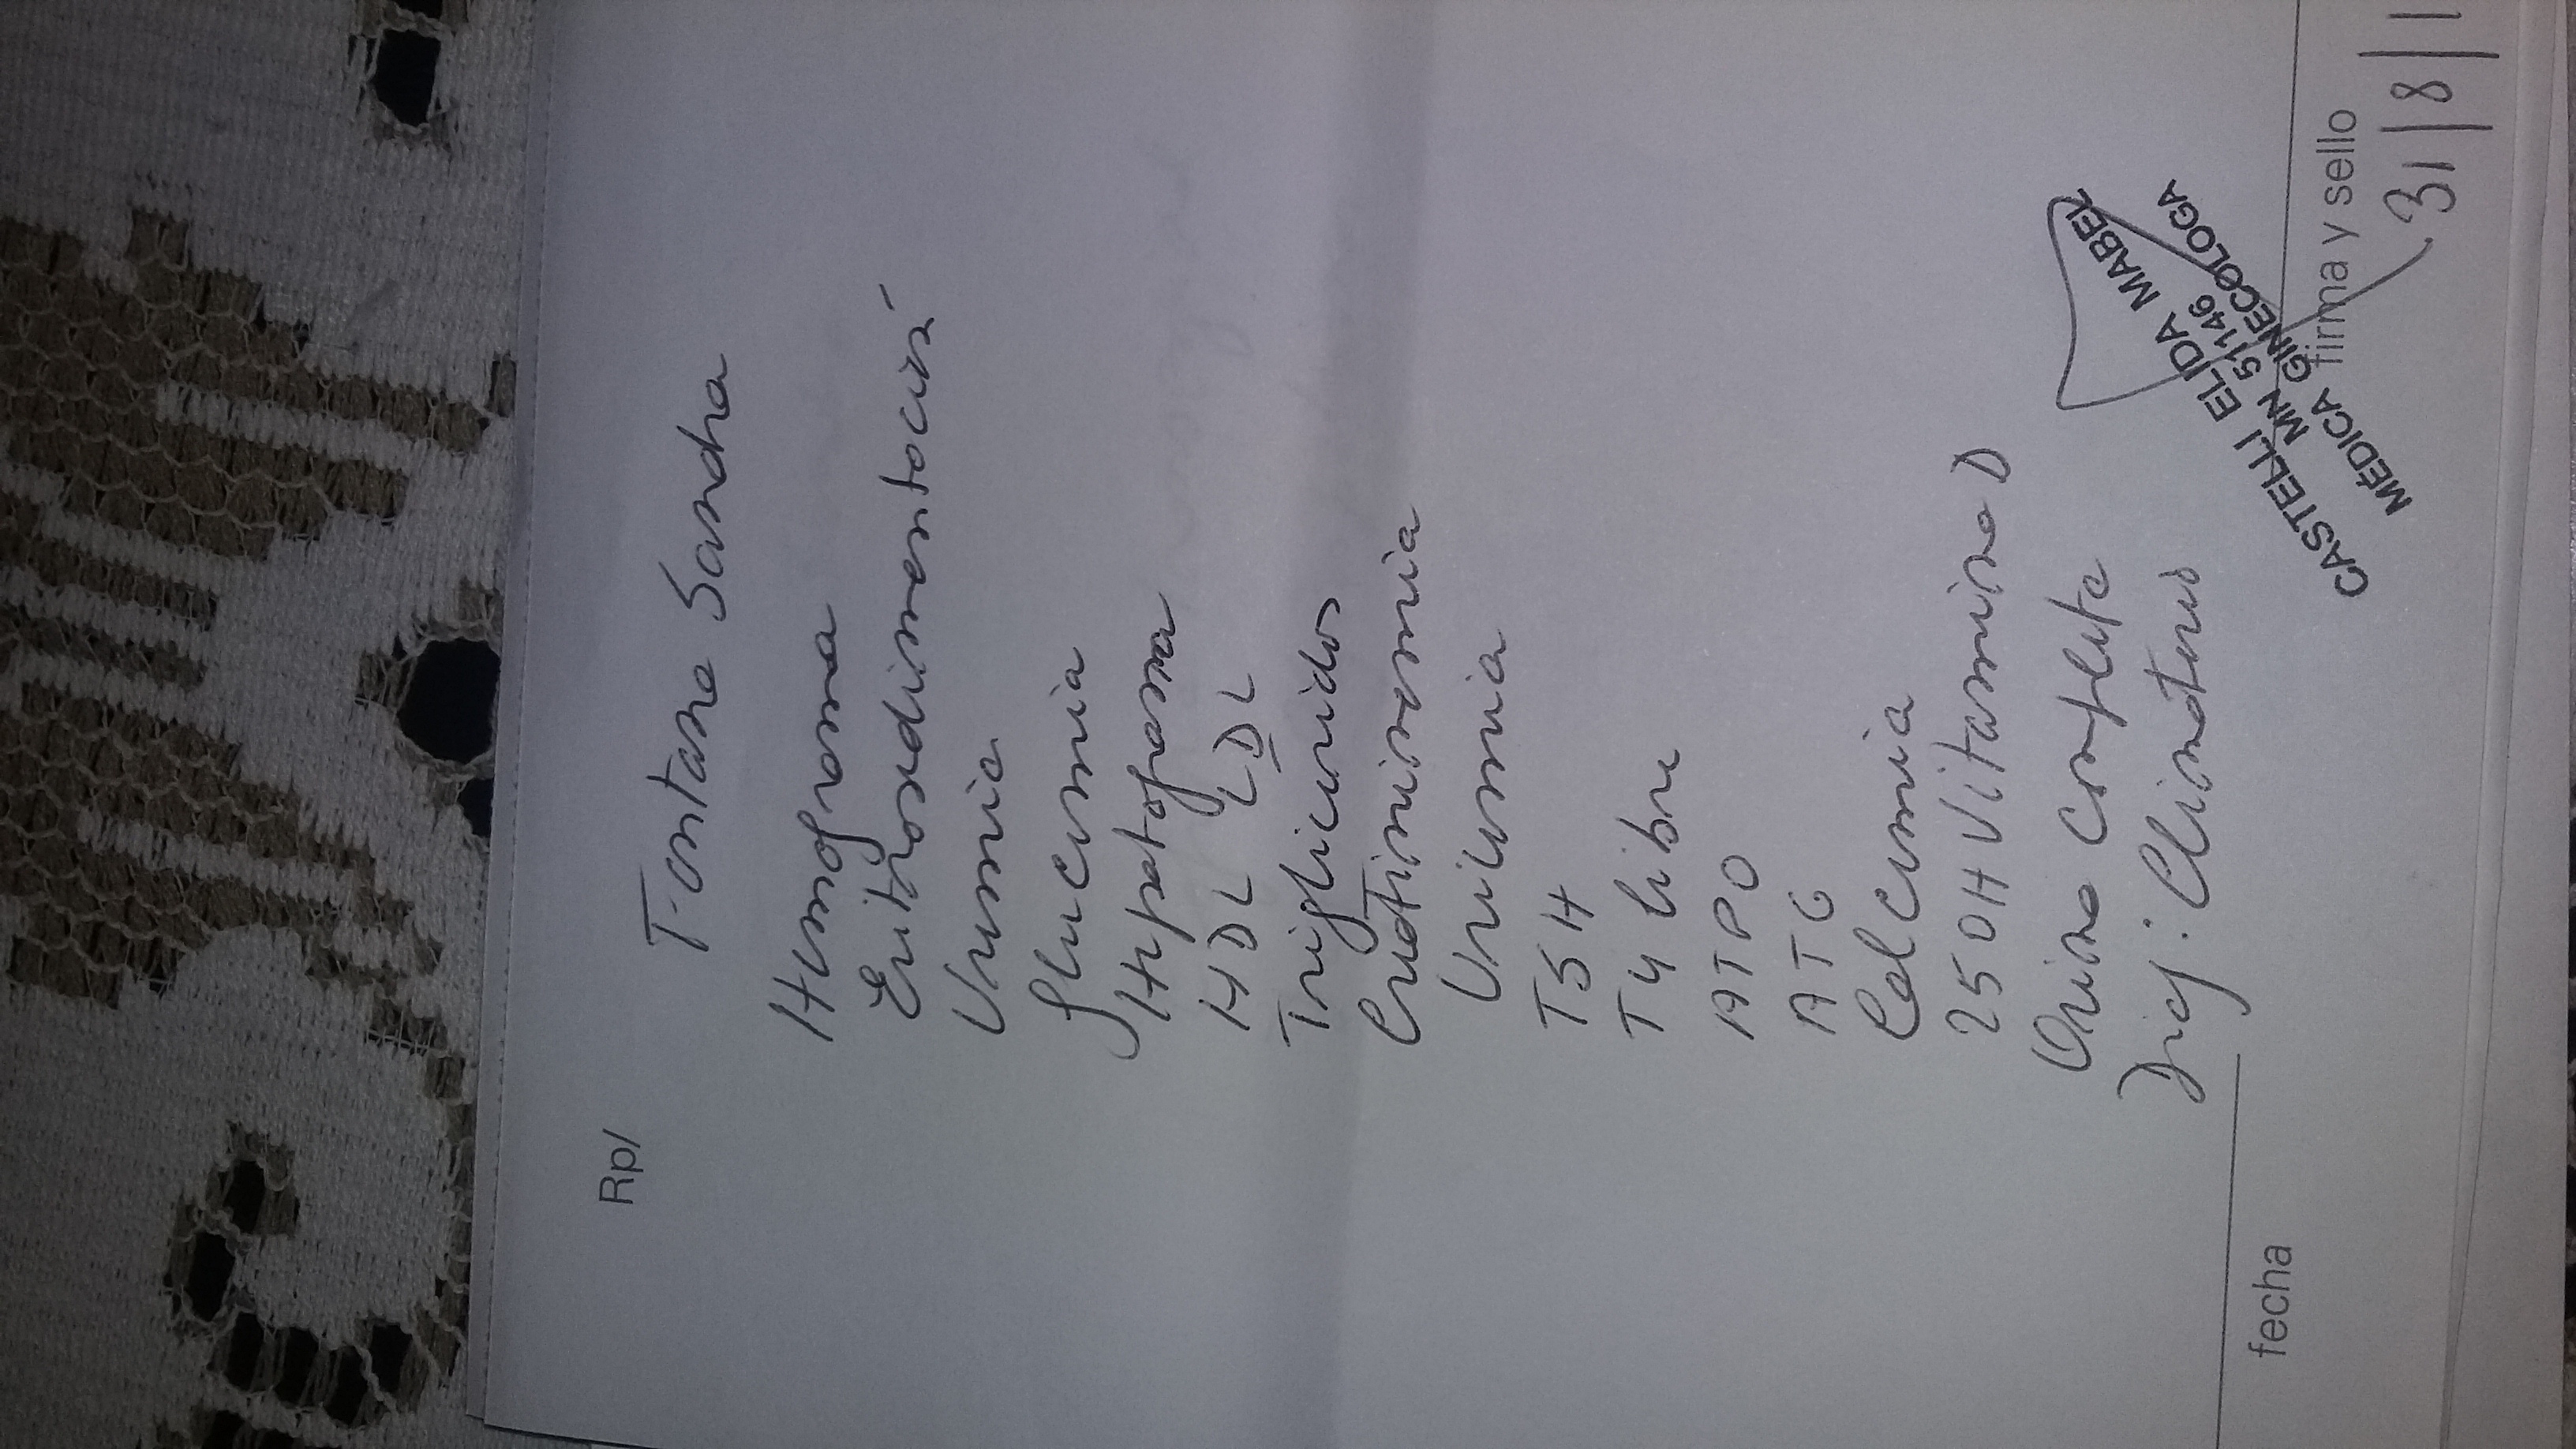 Rp/
Fontana Sandra
Hemograma
Eritrosedimentación
Uremia
Glucemia
Hepatograma
HDL LDL
Trigliceridos
Creatininemia
Uricemia
TSH
T4 libre
ATPO
ATG
Calcemia
25OH Vitamina D
Orina completa
Diag: Climaterio
CASTELLI ELIDA MABEL
MN 51146
MÉDICA GINECOLOGA
fecha
firma y sello
31/8/1